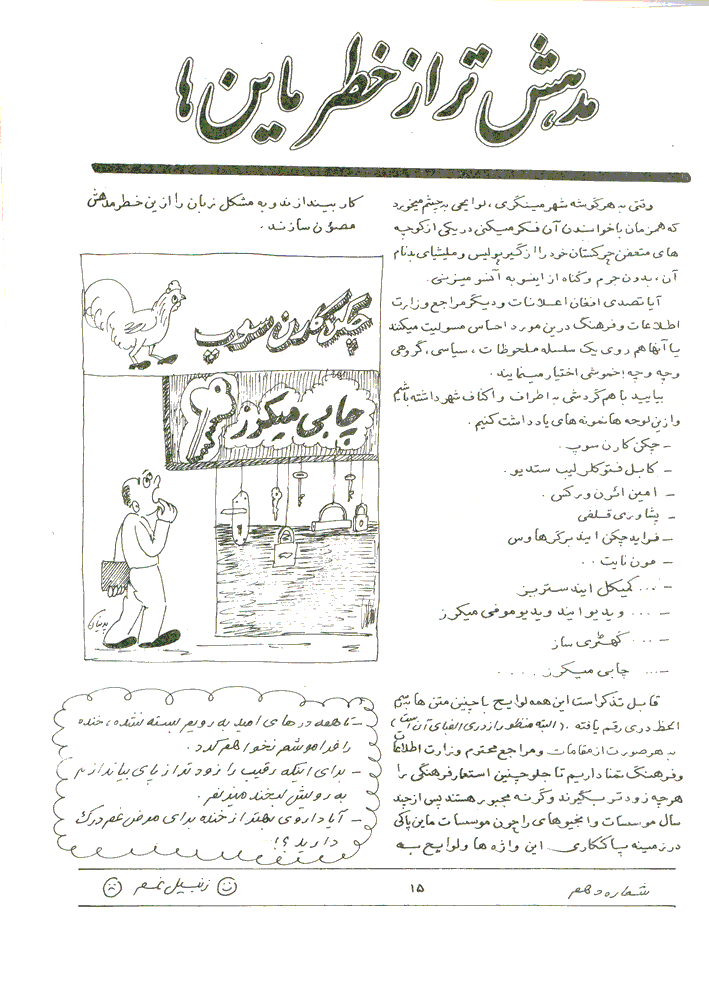 مدهش تر از خطر ماین ها
وقتی به هر گوشه شهر مینگری، لوایحی به چشم میخورد
که همزمان با خواندن آن فکر میکنی در یکی از کوچه
های متعفن چرکستان خود را از گیر پولیس و ملیشیای بدنام
آن، بدون جرم و گناه از اینسو به آنسو میزنی.
آیا تصدی افغان اعلانات و دیگر مراجع وزارت
اطلاعات و فرهنگ درین مورد احساس مسولیت میکند
یا آنها هم روی یک سلسله ملحوظات، سیاسی، گروهی
وچه وچه؛ خموشی اختیار مینمایند.
بیایید با هم گردشی به اطراف و اکناف شهر داشته باشیم
و ازین لوحه ها نمونه های یادداشت کنیم.
- چکن کارن سوپ.
- کابل فتو کلر لیب ستدیو.
- امین ائرن ورکس.
- پشاوری قلفی
- فراید چکن ایند برگر هاوس
- مون نایت..
- ... کمیکل ایند ستریز
- ... ویدیو ایند ویدیو موفی میکرز
- ... کهتری ساز
- ... چابی میکرز ....
قابل تذکر است این همه لوایح با چنین متن ها به رسم
الخط دری رقم یافته. (البته منظور از دری الفبای آن است)
به هر صورت از مقامات و مراجع محترم وزارت اطلاعات
و فرهنگ تمنا داریم تا جلو چنین استعمار فرهنگی را
هرچه زودتر بگیرند و گرنه مجبور هستند پس از چند
سال موسسات و انجیوهای را چون موسسات ماین پاکی
در زمینه پاککاری این واژه ها و لوایح به
کار بیندازند و به مشکل زبان را ازین خطر مدهش
مصوُن سازند.
چکن کارن سوپ
چابی میکرز
- تا همه درهای امید به رویم بسته نشده، خنده
را فراموشم نخواهم کرد.
- برای اینکه رقیب را زودتر از پای بیاندازم
به رویش لبخند میزنم.
- آیا داروی بهتر از خنده برای مرض غم درک
دارید؟!
شماره دهم
۱۵
زنبیل غم